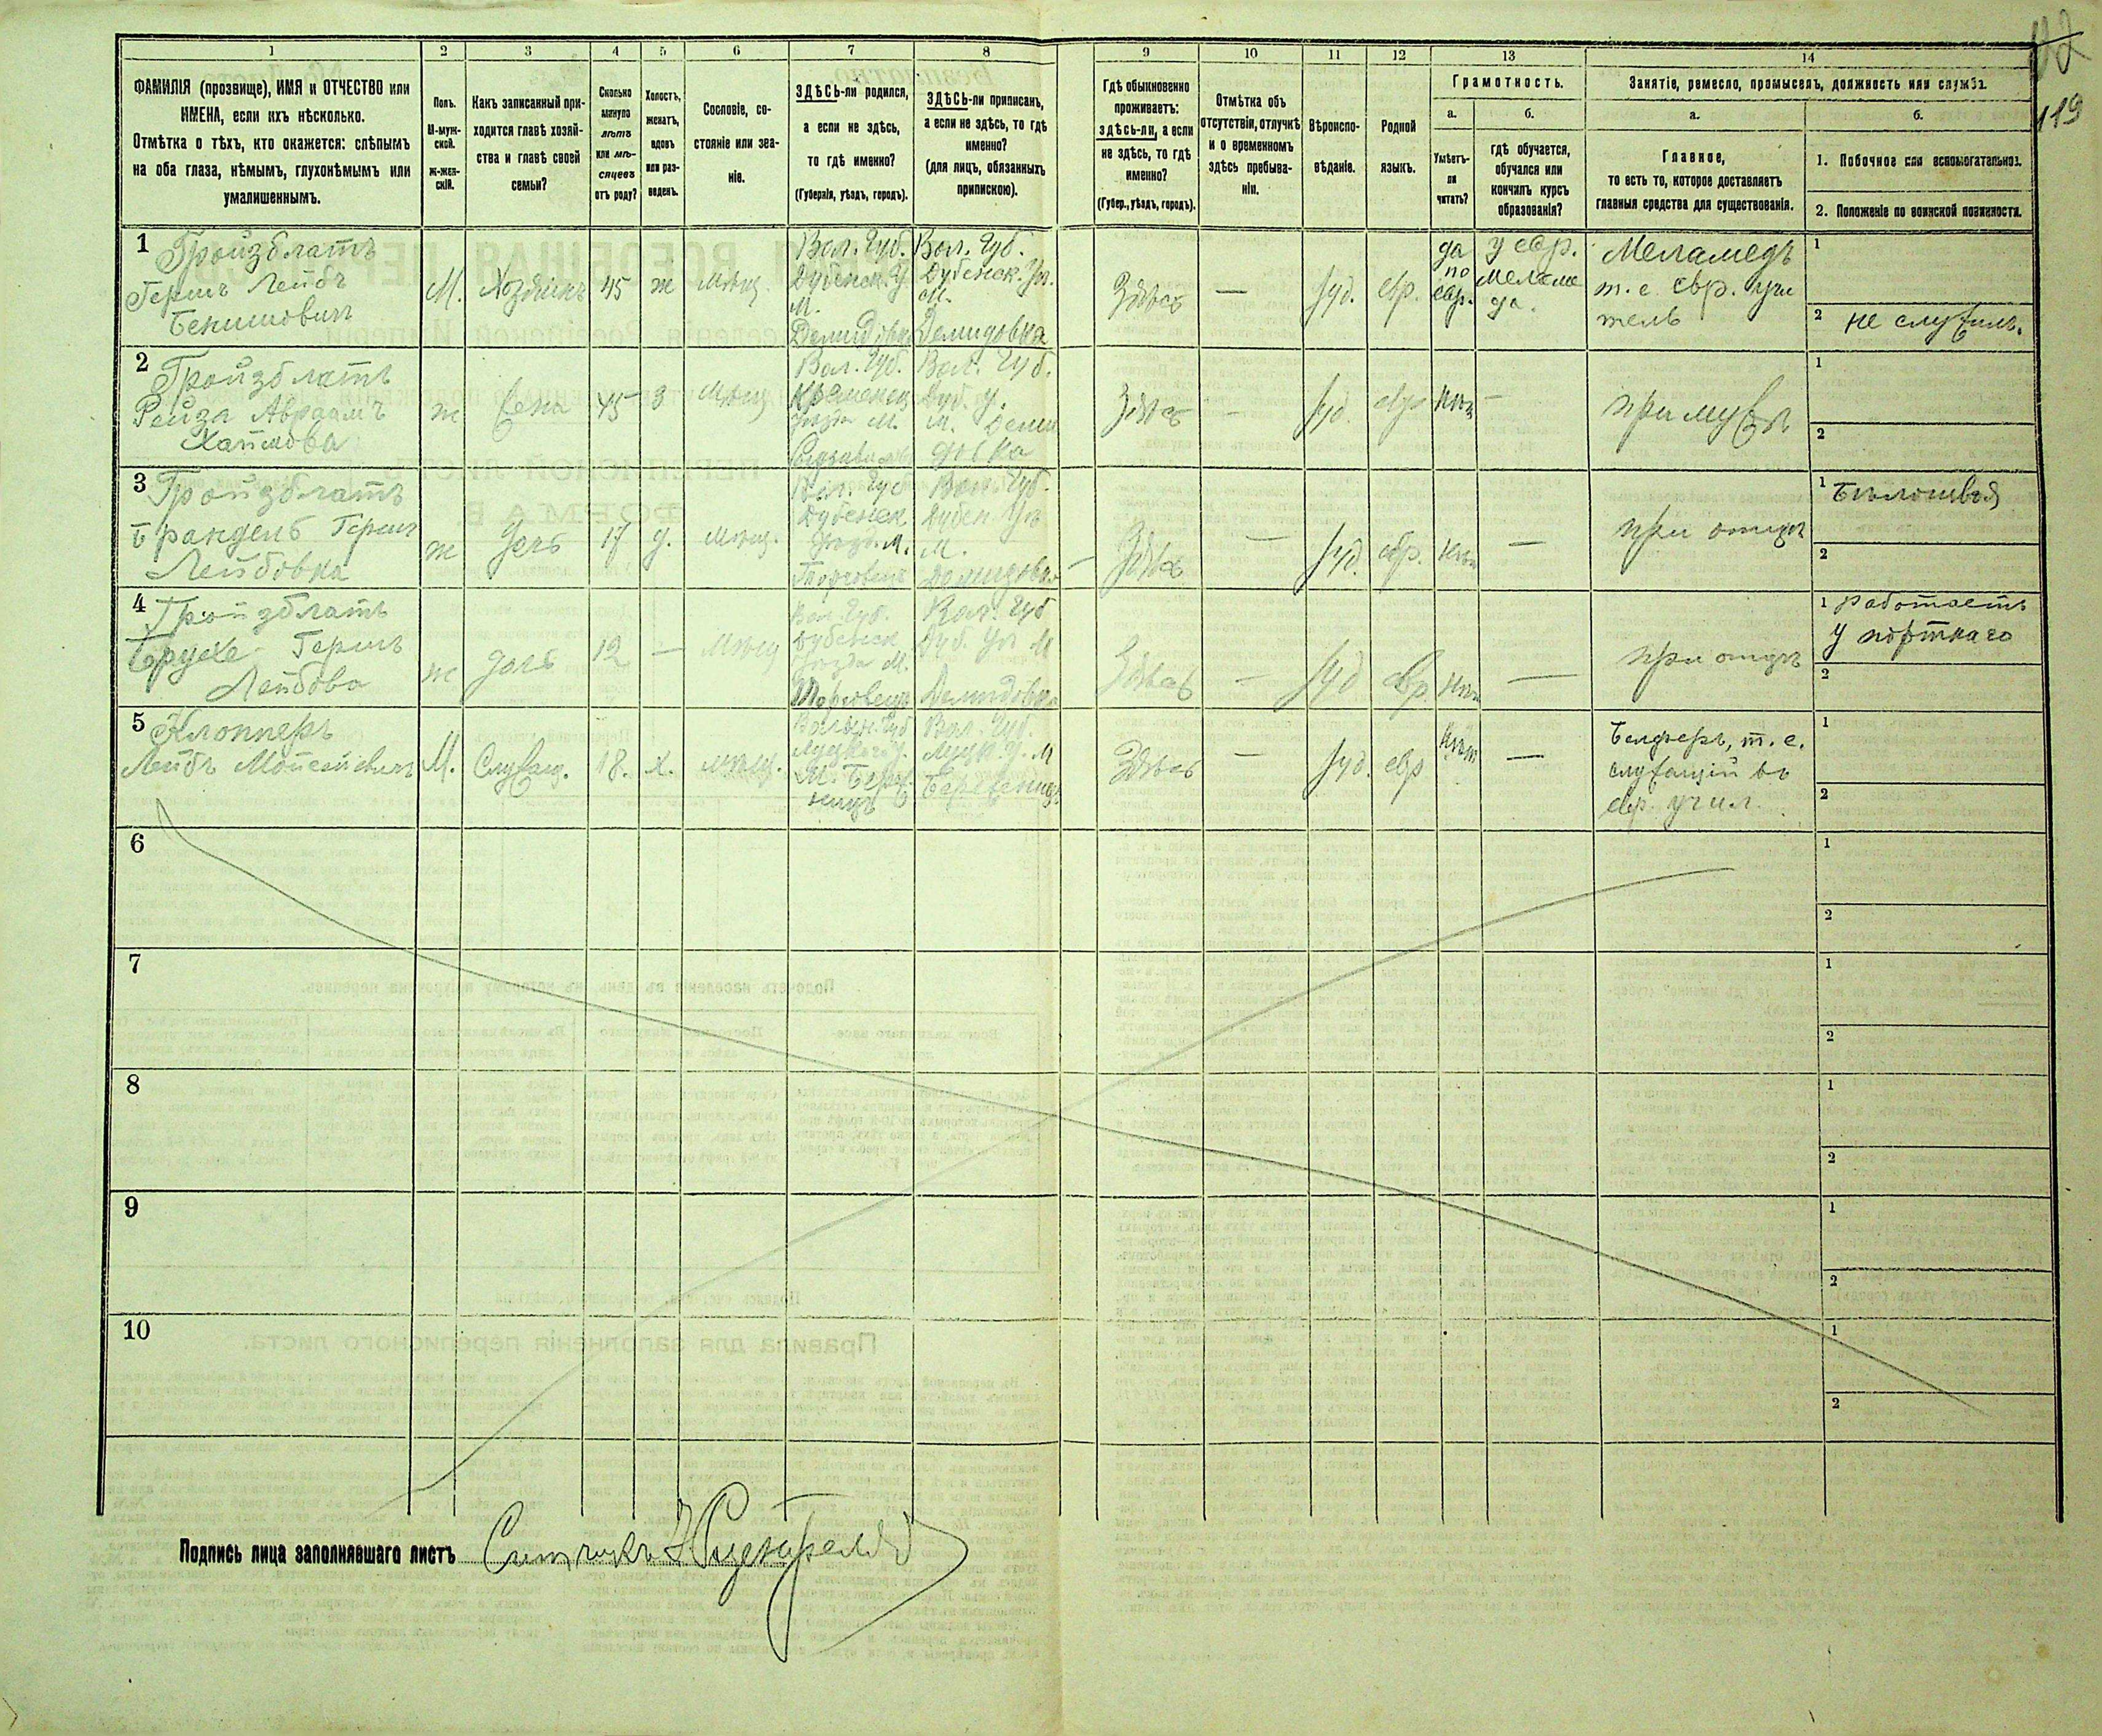 92
119
1
2
3
4
5
6
7
8
9
10
11
12
13
14
ФАМИЛІЯ (прозвище), ИМЯ и ОТЧЕСТВО или
ИМЕНА, если ихъ нѣсколько.
Отмѣтка о тѣхъ, кто окажется: слѣпымъ
на оба глаза, нѣмымъ, глухонѣмымъ или
умалишеннымъ.
Полъ.
М-муж-
ской.
ж-жен-
скій.
Какъ записанный при-
ходится главѣ хозяй-
ства и главѣ своей
семьи?
Сколько
минуло
лѣтъ
или мѣ-
сяцевъ
отъ роду?
Холостъ,
женатъ,
вдовъ
или раз-
веденъ.
Сословіе, со-
стояніе или зва-
ніе.
ЗДѢСЬ-ли родился,
а если не здѣсь,
то гдѣ именно?
(Губернія, уѣздъ, городъ).
ЗДѢСЬ-ли приписанъ,
а если не здѣсь, то гдѣ
именно?
(для лицъ, обязанныхъ
припискою).
Гдѣ обыкновенно
проживаетъ:
здѣсь-ли, а если
не здѣсь, то гдѣ
именно?
(Губер., уѣздъ, городъ).
Отмѣтка объ
отсутствіи, отлучкѣ
и о временномъ
здѣсь пребыва-
ніи.
Вѣроиспо-
вѣданіе.
Родной
языкъ.
Грамотность.
а.
Умѣетъ-
ли
читать?
б.
гдѣ обучается,
обучался или
кончилъ курсъ
образованія?
Занятіе, ремесло, промыселъ, должность или служба.
а.
Главное,
то есть то, которое доставляетъ
главныя средства для существованія.
б.
1. Побочное или вспомогательное.
2. Положеніе по воинской повинности.
1
Гройзблатъ
Гершъ Лейбъ
Бенимовичъ
М.
Хозяинъ
45
ж
Мѣщ.
Вол. Губ.
Дубенск. У.
М.
Демидовка
Вол. Губ.
Дубенск. Уѣ.
М.
Демидовка
Здѣсь
—
Іуд.
евр.
да
по
евр.
у евр.
меламе
да.
Меламедъ
т. е. евр. учи
тель
1
2 не служилъ.
2
Гройзблатъ
Рейза Авраамъ
Хаимова
ж
Жена
45
з
Мѣщ
Вол. Губ.
Кременец
М.
Вол. Губ.
Дуб. У.
М. Деми
довка
Здѣсь
—
Іуд.
евр
Нѣтъ
—
при мужѣ
1
2
3
Гройзблатъ
Брандель Гершъ
Лейбовна
ж
Дочь
17
д.
Мѣщ.
Вол. Губ
Дубенск
М.
Вол. Губ.
Дубен Уѣ
М.
Демидовка
Здѣсь
—
Іуд.
евр.
Нѣтъ
—
при отцѣ
1 Бѣлошвея
2
4
Гройзблатъ
Брухе Гершъ
Лейбова
ж
дочь
12
—
Мѣщ
Вол. Губ.
Дубенск
Уѣзда М.
Вол. Губ
Дуб. Уѣ М
Демидовка
Здѣсь
—
Іуд
евр.
Нѣтъ
—
при отцѣ
1 работаетъ
у портнаго
2
5
Клопперъ
Лейбъ Мойсеевичъ
М.
Служащ.
18.
х.
мѣщ.
Волын. Губ
Луцкаго У.
М. Береж
ницъ
Вол. Губ.
Луцк. У. М
Бережницъ
Здѣсь
—
Іуд.
евр
Нѣтъ
—
Белферъ, т. е.
служащій въ
евр. учил.
1
2
6
1
2
7
1
2
8
1
2
9
1
2
10
1
2
Подпись лица заполнявшаго листъ Счетчикъ